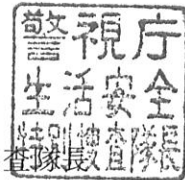 警視庁
生活安全
特別捜査隊長
査隊長